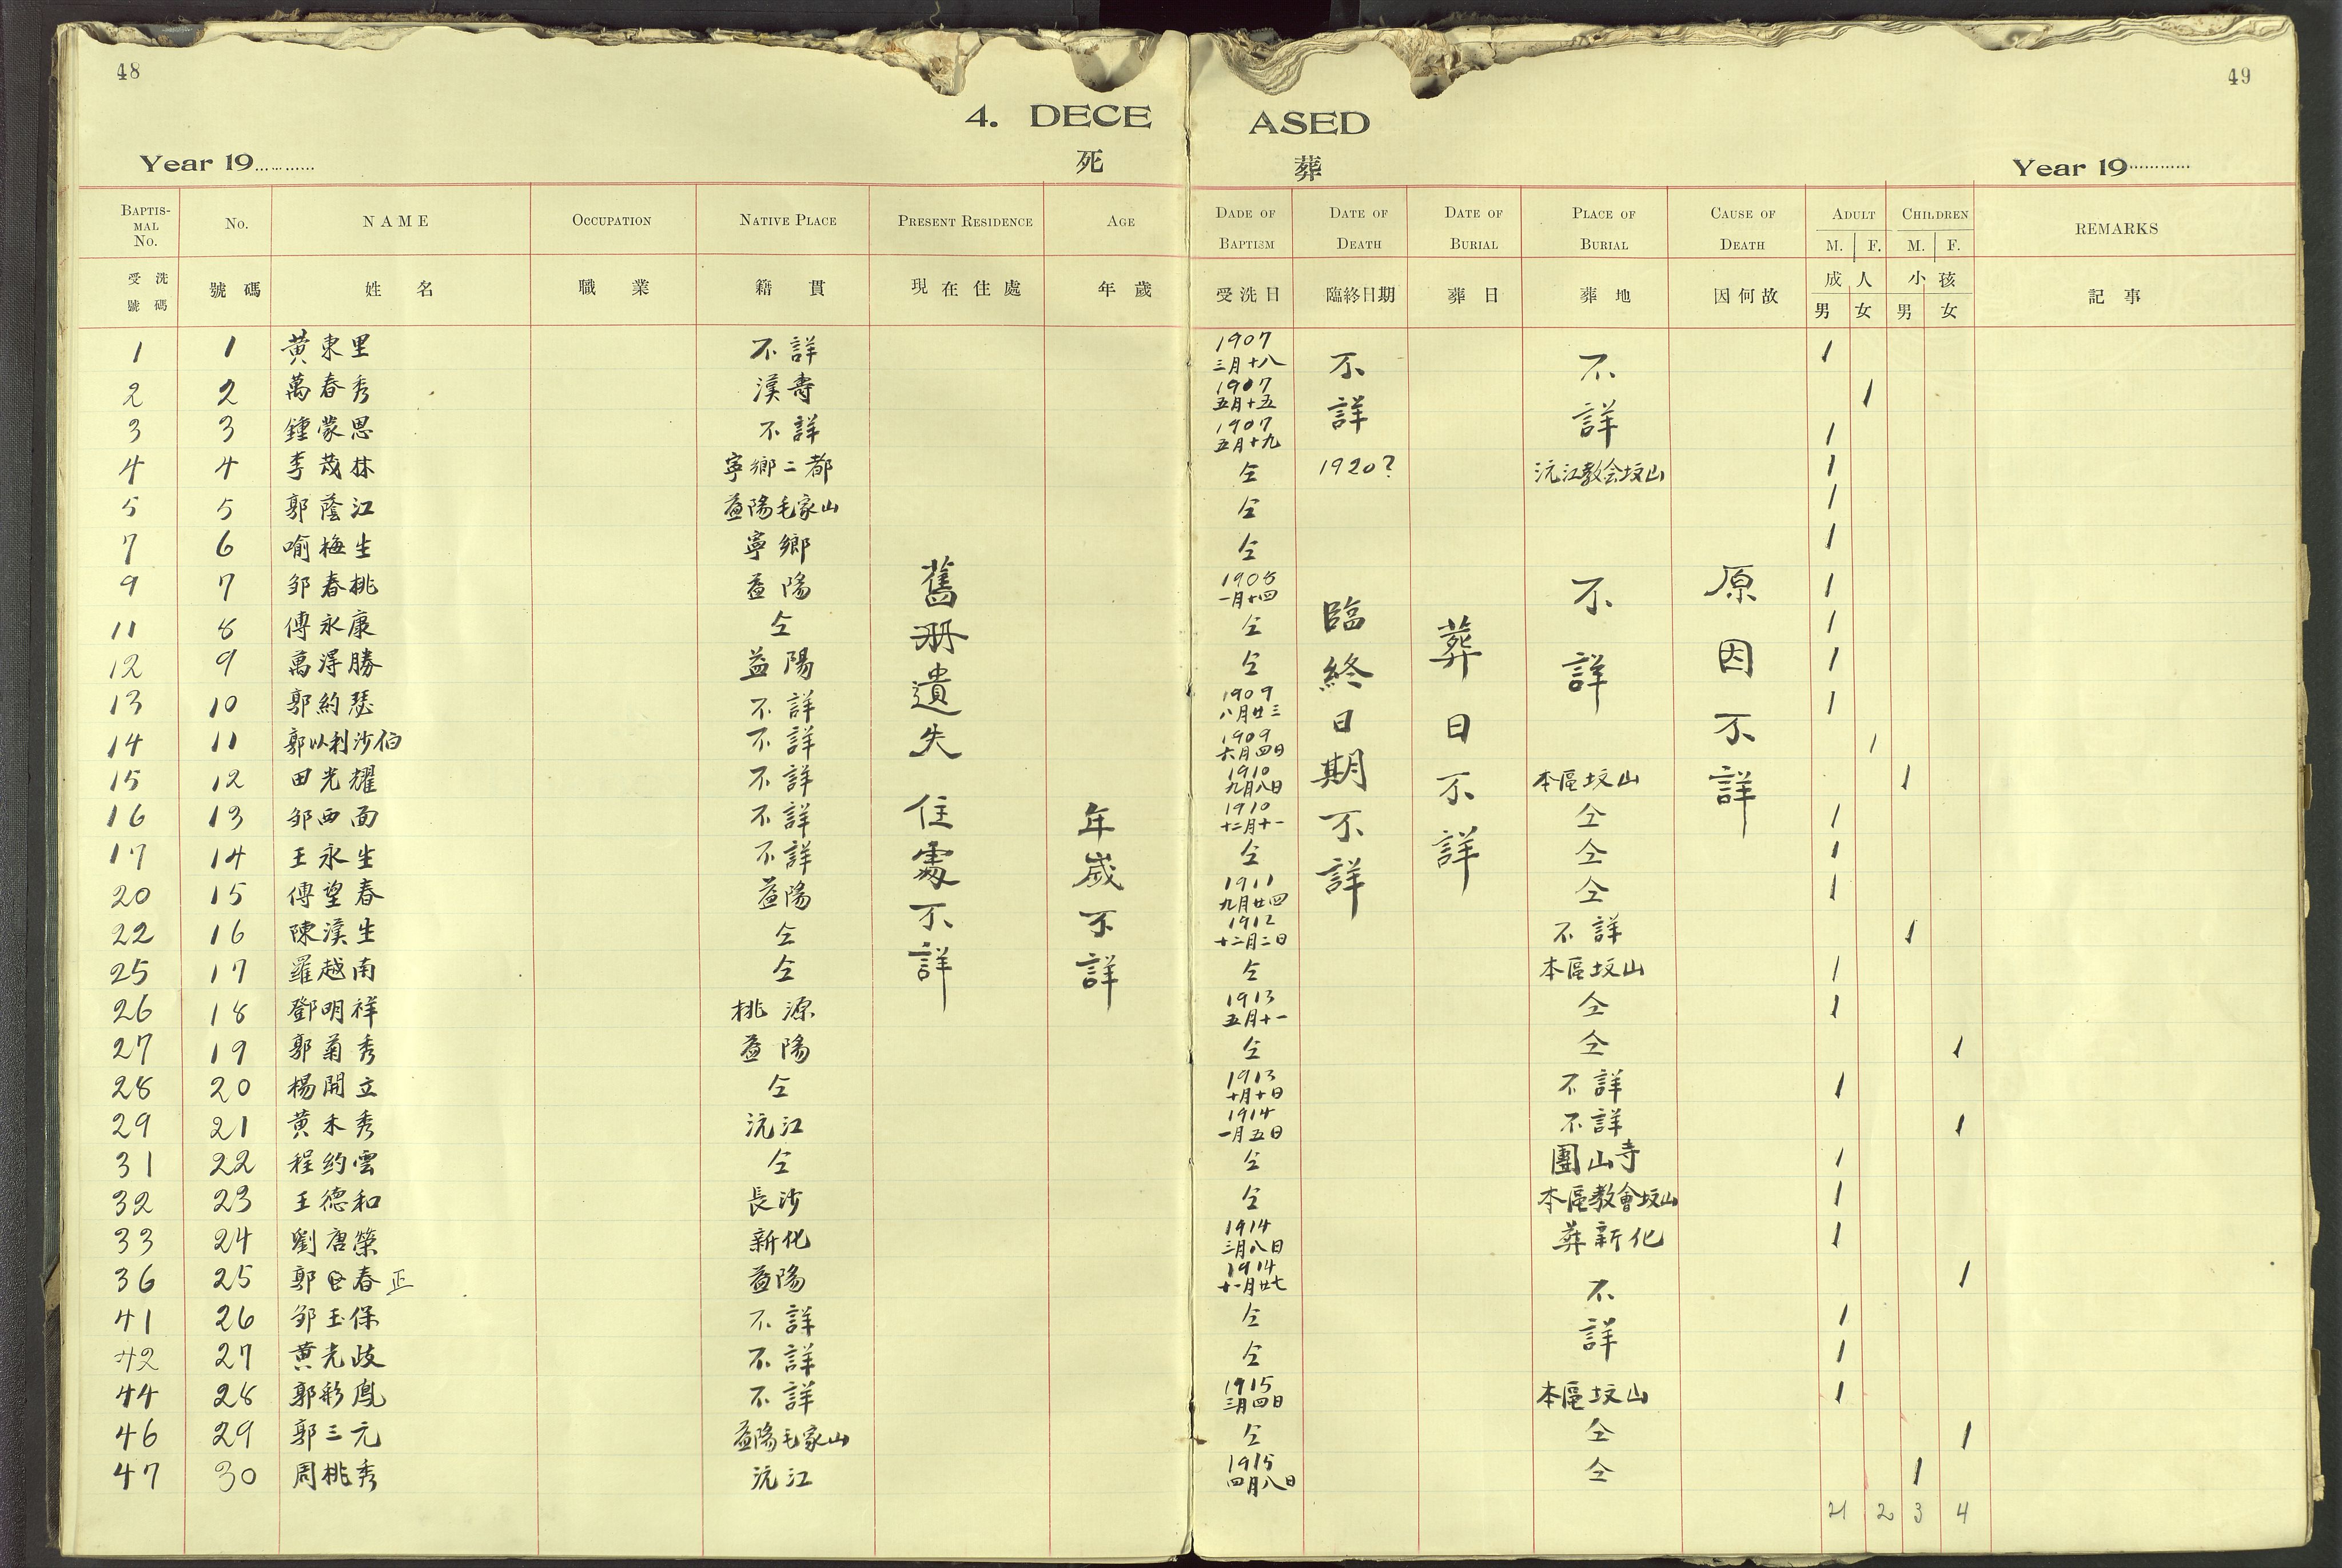 48
49
4. DECE ASED
Year 19............ 死 葬 Year 19............
BAPTIS-MAL No. No. NAME OCCUPATION NATIVE PLACE PRESENT RESIDENCE AGE DADE OF BAPTISM DATE OF DEATH DATE OF BURIAL PLACE OF BURIAL CAUSE OF DEATH ADULT M. F. CHILDREN M. F. REMARKS
受洗號碼 號碼 姓名 職業 籍貫 現在住處 年歲 受洗日 臨終日期 葬日 葬地 因何故 成人 男 女 小孩 男 女 記事
1 1 黃東里 不詳 1907 三月十八 不詳 不詳 1
2 2 萬春秀 漢壽 1907 五月十五 1
3 3 鍾蒙恩 不詳 1907 五月十九 1
4 4 李茂林 寧鄉二都 仝 1920? 沅江教会坟山 1
5 5 郭蔭江 益陽毛家山 仝 1
7 6 喻梅生 寧鄉 仝 1
9 7 邹春桃 益陽 1908 一月十四 1
11 8 傅永康 仝 仝 1
12 9 萬得勝 益陽 仝 1
13 10 郭約瑟 不詳 1909 八月廿三 1
14 11 郭以利沙伯 不詳 1909 六月四日 1
15 12 田光耀 不詳 1910 九月八日 本區坟山 1
16 13 邹西面 不詳 1910 十二月十一 仝 1
17 14 王永生 不詳 仝 仝 1
20 15 傅望春 益陽 1911 九月廿四 仝 1
22 16 陳漢生 仝 1912 十二月二日 不詳 1
25 17 羅越南 仝 仝 本區坟山 1
26 18 鄧明祥 桃源 1913 五月十一 仝 1
27 19 郭菊秀 益陽 仝 仝 1
28 20 楊開立 仝 1913 十月十日 不詳 1
29 21 黃禾秀 沅江 1914 一月五日 不詳 1
31 22 程約雲 仝 仝 團山寺 1
32 23 王德和 長沙 仝 本區教會坟山 1
33 24 劉唐榮 新化 1914 三月八日 葬新化 1
36 25 郭春正 益陽 1914 十一月廿七 不詳 1
41 26 邹玉保 不詳 仝 1
42 27 黃光歧 不詳 仝 1
44 28 郭彩鳳 不詳 1915 三月四日 本區坟山 1
46 29 郭三元 益陽毛家山 仝 仝 1
47 30 周桃秀 沅江 1915 四月八日 仝 1
舊册遺失 住處不詳
年歲不詳
臨終日期不詳
葬日不詳
不詳
原因不詳
21 2 3 4